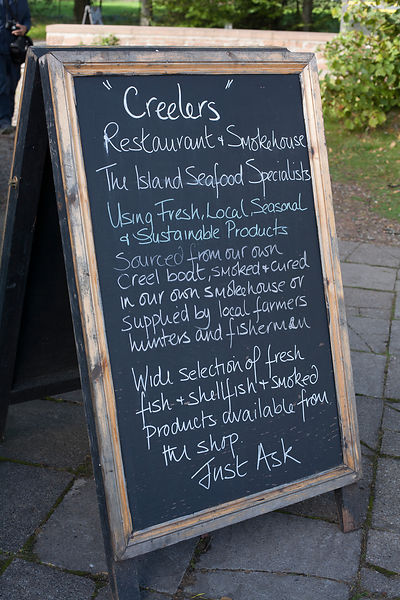 "Creelers"
Restaurant & Smokehouse
The Island Seafood Specialists
Using Fresh, Local, Seasonal
& Sustainable Products
Sourced from our own
Creel boat, smoked & cured
in our own smokehouse or
supplied by local farmers
hunters and fisherman
Wide selection of fresh
fish & shellfish & smoked
products available from
the shop.
Just Ask